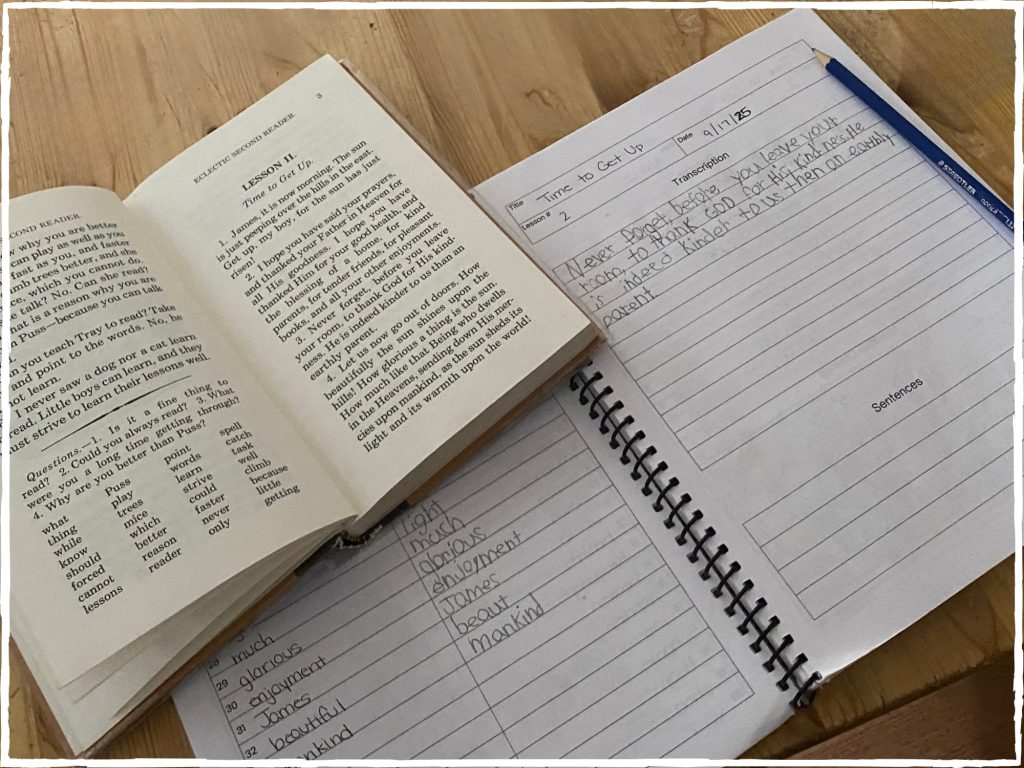 COND READER
or why you are better
can play as well as you
fast as you, and you
imb trees better, and she
ce, which you cannot do.
e talk? No. Can she read?
hat is a reason why you are
n Puss—because you can talk
n you teach Tray to read? Take
and point to the words. No, he
not learn.
I never saw a dog nor a cat learn
read. Little boys can learn, and they
ust strive to learn their lessons well.
Questions.—1. Is it a fine thing to
read? 2. Could you always read? 3. What
were you a long time getting through?
4. Why are you better than Puss?
what Puss point spell
thing play words catch
while trees learn task
know mice strive well
should which could climb
forced better faster because
cannot reason never little
lessons reader only getting
ECLECTIC SECOND READER 3
LESSON II.
Time to Get Up.
1. James, it is now morning. The sun
is just peeping over the hills in the east.
Get up, my boy, for the sun has just
risen!
2. I hope you have said your prayers,
and thanked your Father in Heaven for
all His goodness. I hope you have
thanked Him for your good health, and
the blessing of a home, for kind
parents, for tender friends, for pleasant
books, and all your other enjoyments.
3. Never forget, before you leave
your room, to thank God for His kind-
ness. He is indeed kinder to us than an
earthly parent.
4. Let us now go out of doors. How
beautifully the sun shines upon the
hills! How glorious a thing is the sun.
How much like that Being who dwells
in the Heavens, sending down His mer-
cies upon mankind, as the sun sheds its
light and its warmth upon the world!
Title Time to Get Up Date 9/17/25
Lesson # 2
Transcription
Never forget before you leave your
room, to thank GOD for His Kindness. He
is indeed Kinder to us then an earthly
parent
Sentences
light
28 much much
29 glorious glorious
30 enjoyment
31 James James
32 beautiful beaut
mankind
STAEDTLER